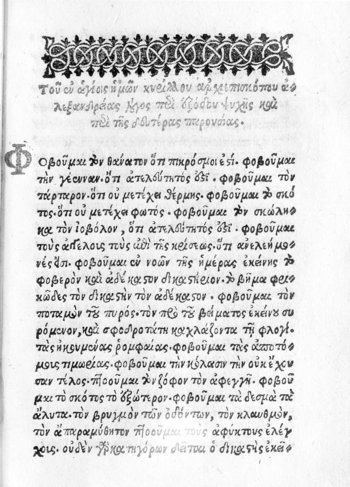 Τοῦ ἐν ἁγίοις ἡμῶν κυρίλλου ἀρχιεπισκόπου ἀ-
λεξανδρείας λόγος περὶ ἐξόδου ψυχῆς καὶ
περὶ τῆς δευτέρας παρουσίας.
Φοβοῦμαι τὸν θάνατον ὅτι πικρός μοι ἐστί. φοβοῦμαι
τὴν γέενναν. ὅτι ἀτελεύτητός ἐστι. φοβοῦμαι τὸν
τάρταρον. ὅτι οὐ μετέχει θέρμης. φοβοῦμαι τὸ σκό-
τος. ὅτι οὐ μετέχει φωτός. φοβοῦμαι τὸν σκώλη-
κα τὸν ἰοβόλον, ὅτι ἀτελεύτητός ἐστι. φοβοῦμαι
τοὺς ἀγγέλους τοὺς ἐπὶ τῆς κρίσεως. ὅτι ἀνελεήμο-
νές εἰσι. φοβοῦμαι ἐν νοῶν τῆς ἡμέρας ἐκείνης τὸ
φοβερὸν καὶ ἀδέκαστον δικαστήριον. τὸ βῆμα φρι-
κῶδες τὸν δικαστὴν τὸν ἀδέκαστον. φοβοῦμαι τὸν
ποταμὸν τοῦ πυρός. τὸν πρὸ τοῦ βήματος ἐκείνου συ
ρόμενον, καὶ σφοδροτάτη καχλάζοντα τῇ φλογί.
τὰς ἠκονημένας ῥομφαίας. φοβοῦμαι τὰς ἀποτό-
μους τιμωρίας. φοβοῦμαι τὴν κόλασιν τὴν οὐκ ἔχου
σαν τέλος. φοβοῦμαι τὸν ζόφον τὸν ἀφεγγῆ. φοβοῦ
μαι τὸ σκότος τὸ ἐξώτερον. φοβοῦμαι τὰ δεσμὰ τὰ
ἄλυτα. τὸν βρυγμὸν τῶν ὀδόντων, τὸν κλαυθμὸν,
τὸν ἀπαραμύθητον φοβοῦμαι τοὺς ἀφύκτους ἐλέγ
χους. οὐδὲν γὰρ κατηγόρων δεῖται ὁ δικαστὴς ἐκεῖ-